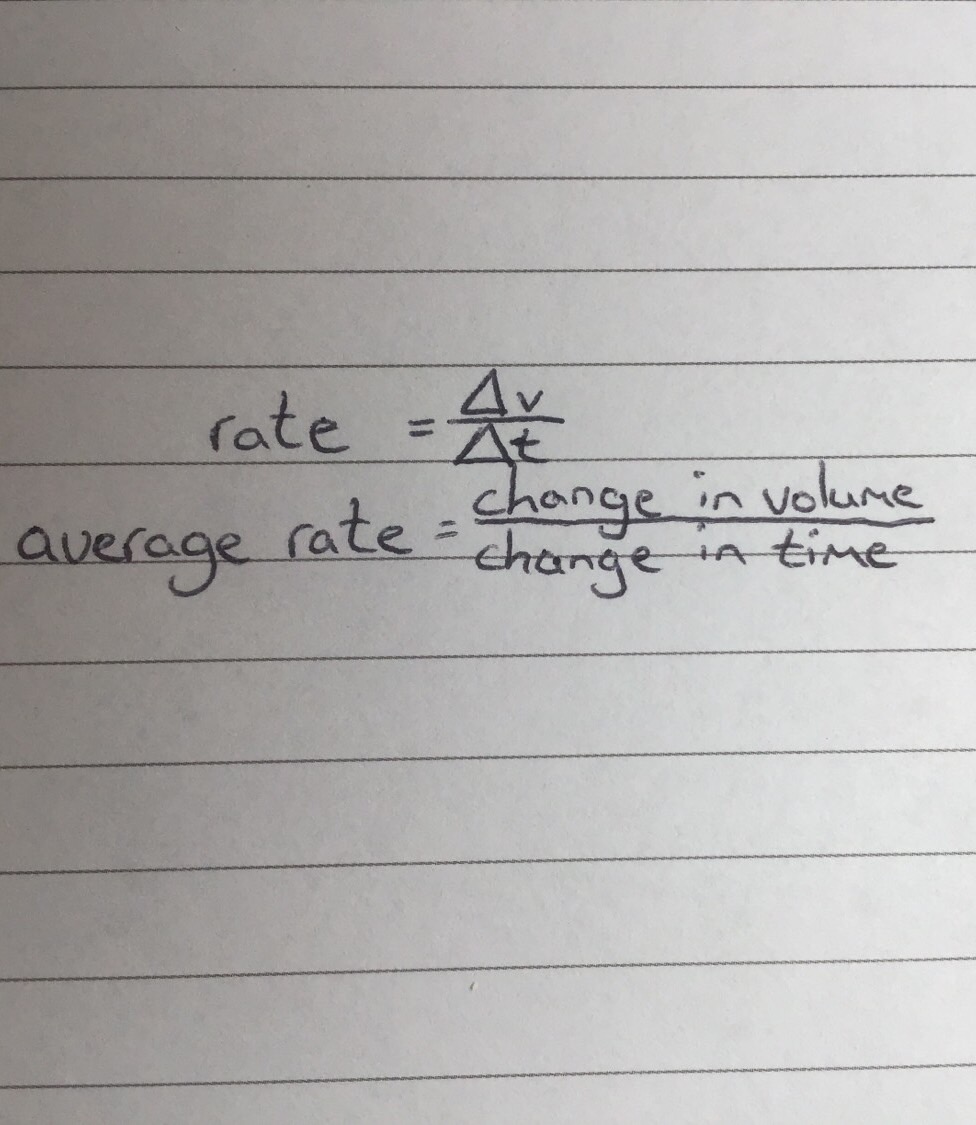 rate = Δv/Δt
average rate = change in volume/change in time